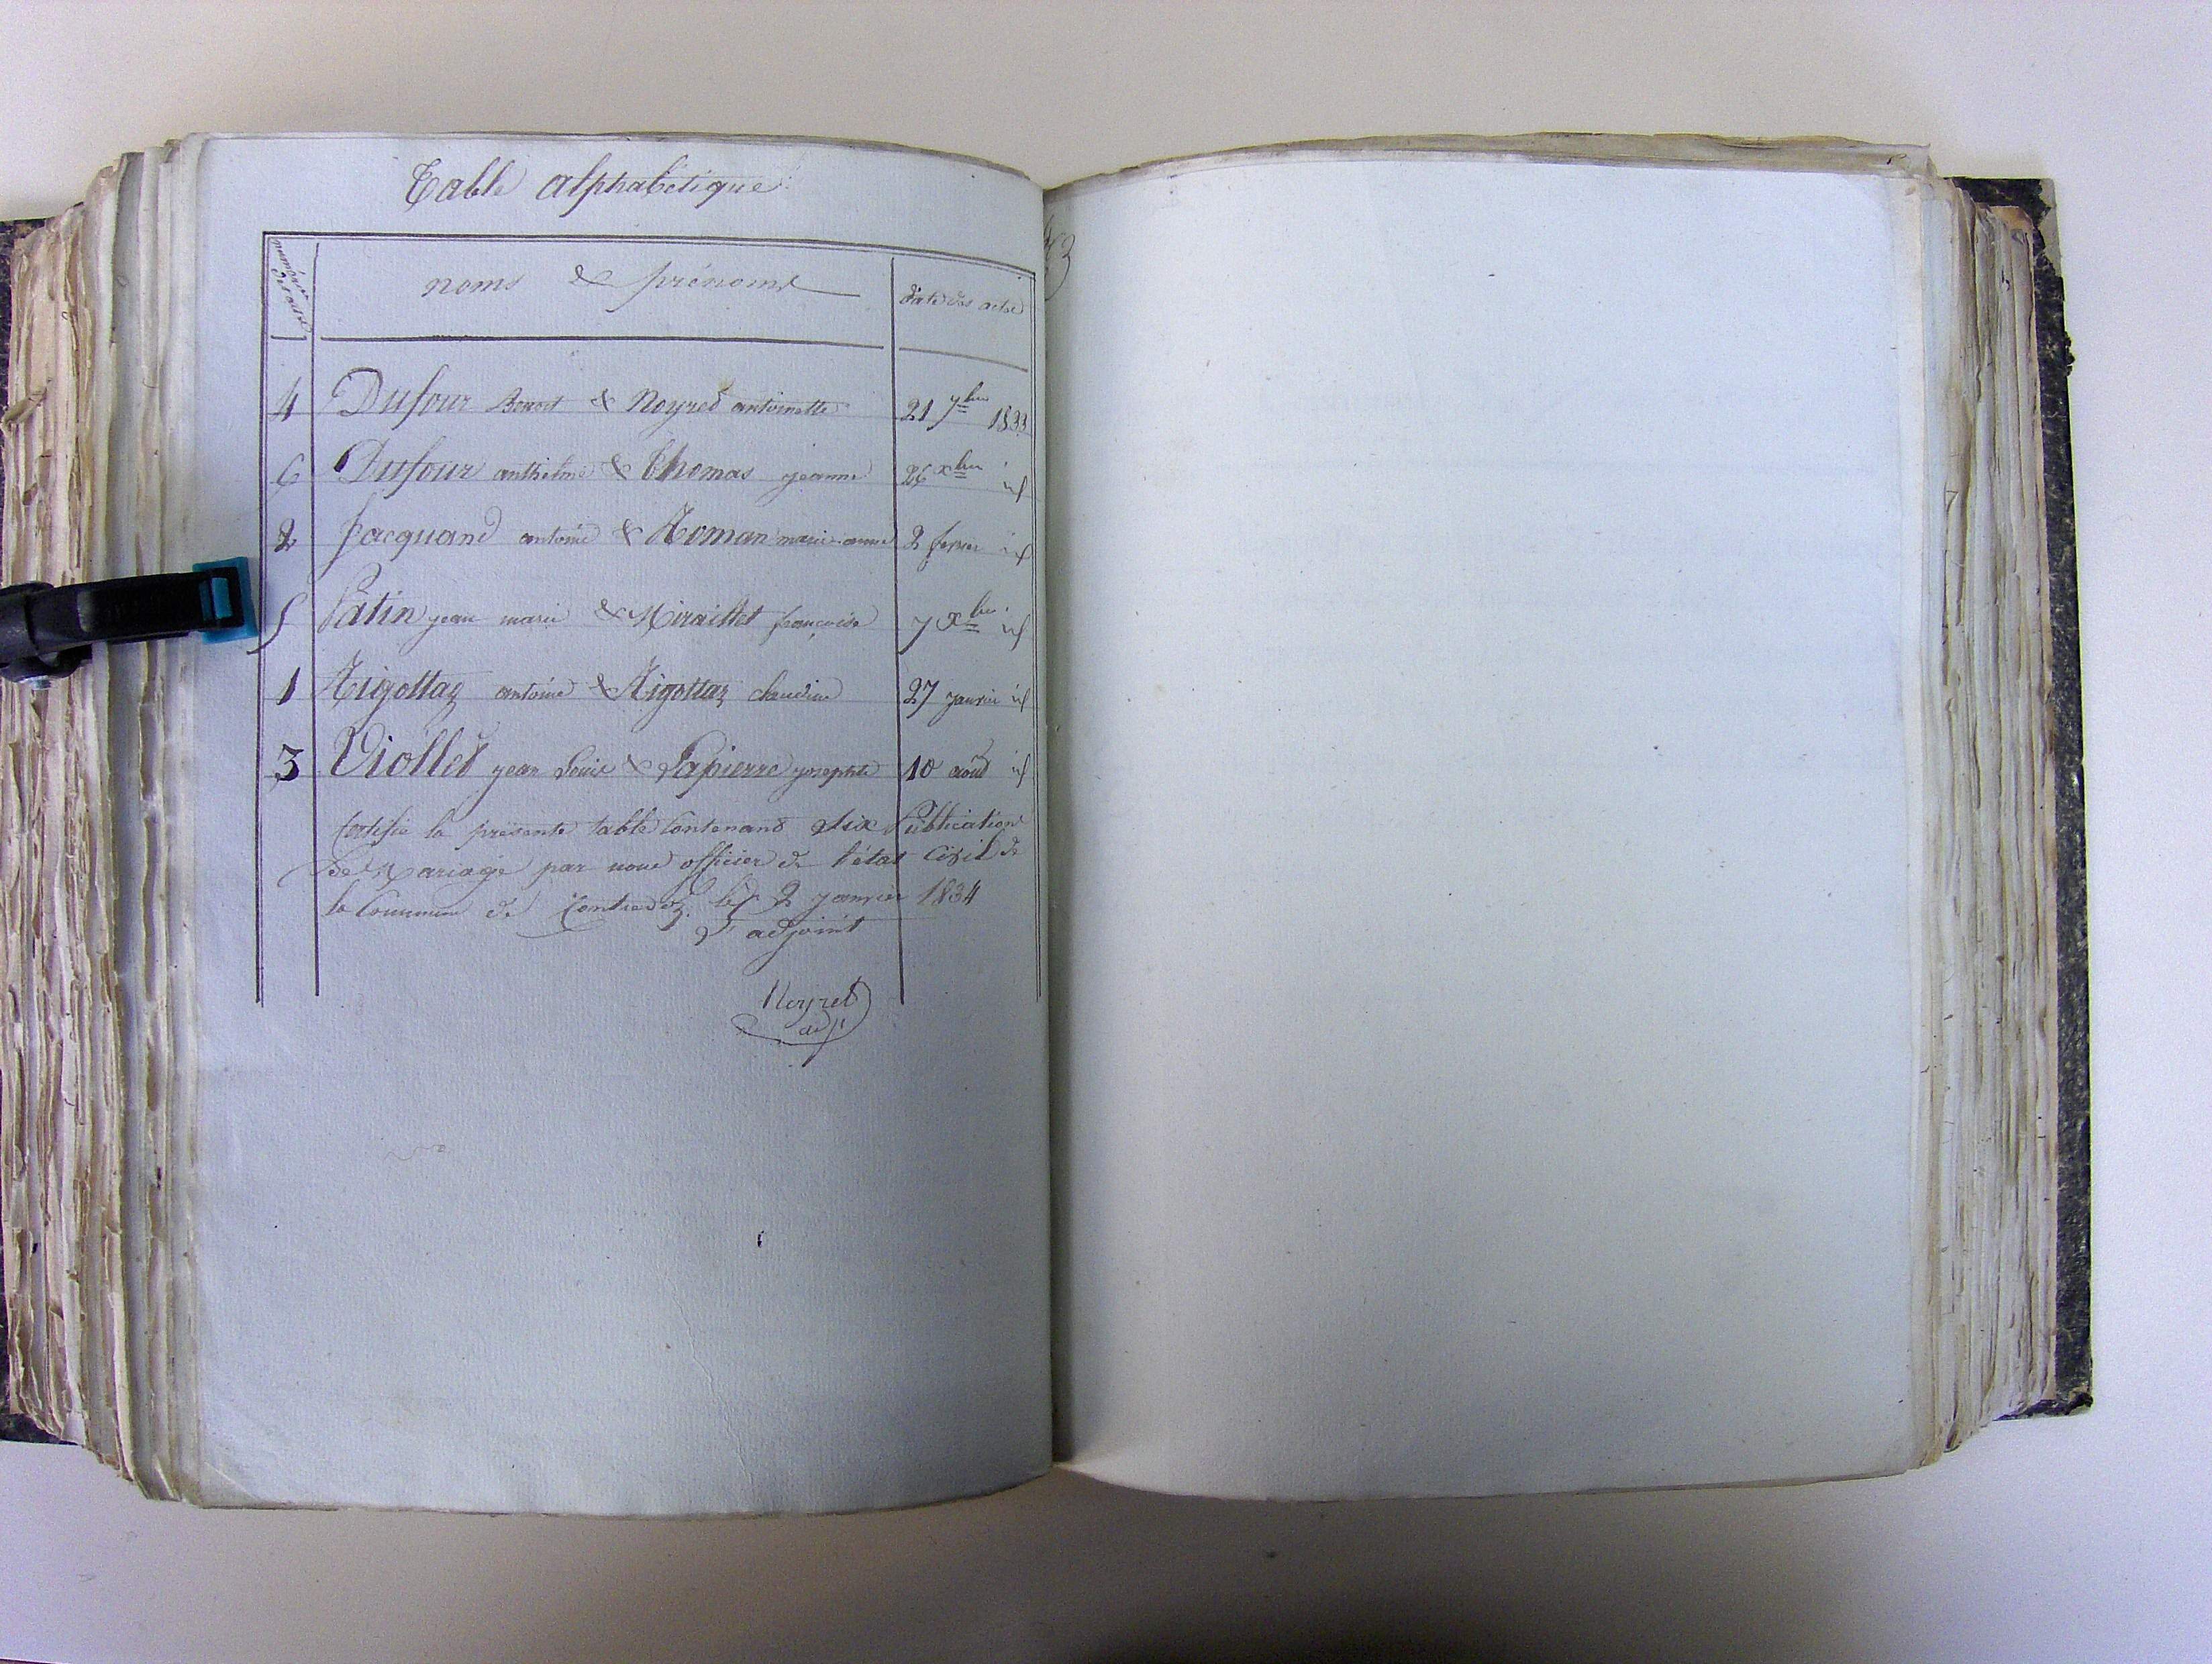 Table alphabétique
numéros des actes
noms & prénoms
date des actes
4 Dufour Benoit & Neyret antoinette 21 7bre 1833
6 Dufour anthelme & Thomas jeanne 26 xbre id
2 Jacquand antoine & Roman marie-anne 2 fevrier id
5 Patin jean marie & Miraillet françoise 7 xbre id
1 Rigottaz antoine & Rigottaz claudine 27 janvier id
3 Viollet jean Louis & Lapierre josephte 10 août id
Certifié la présente table Contenant Six Publication
De Mariage par nous officier de l'état Civil de
la Commune de le 2 janvier 1834
L'adjoint
Neyret
adjt